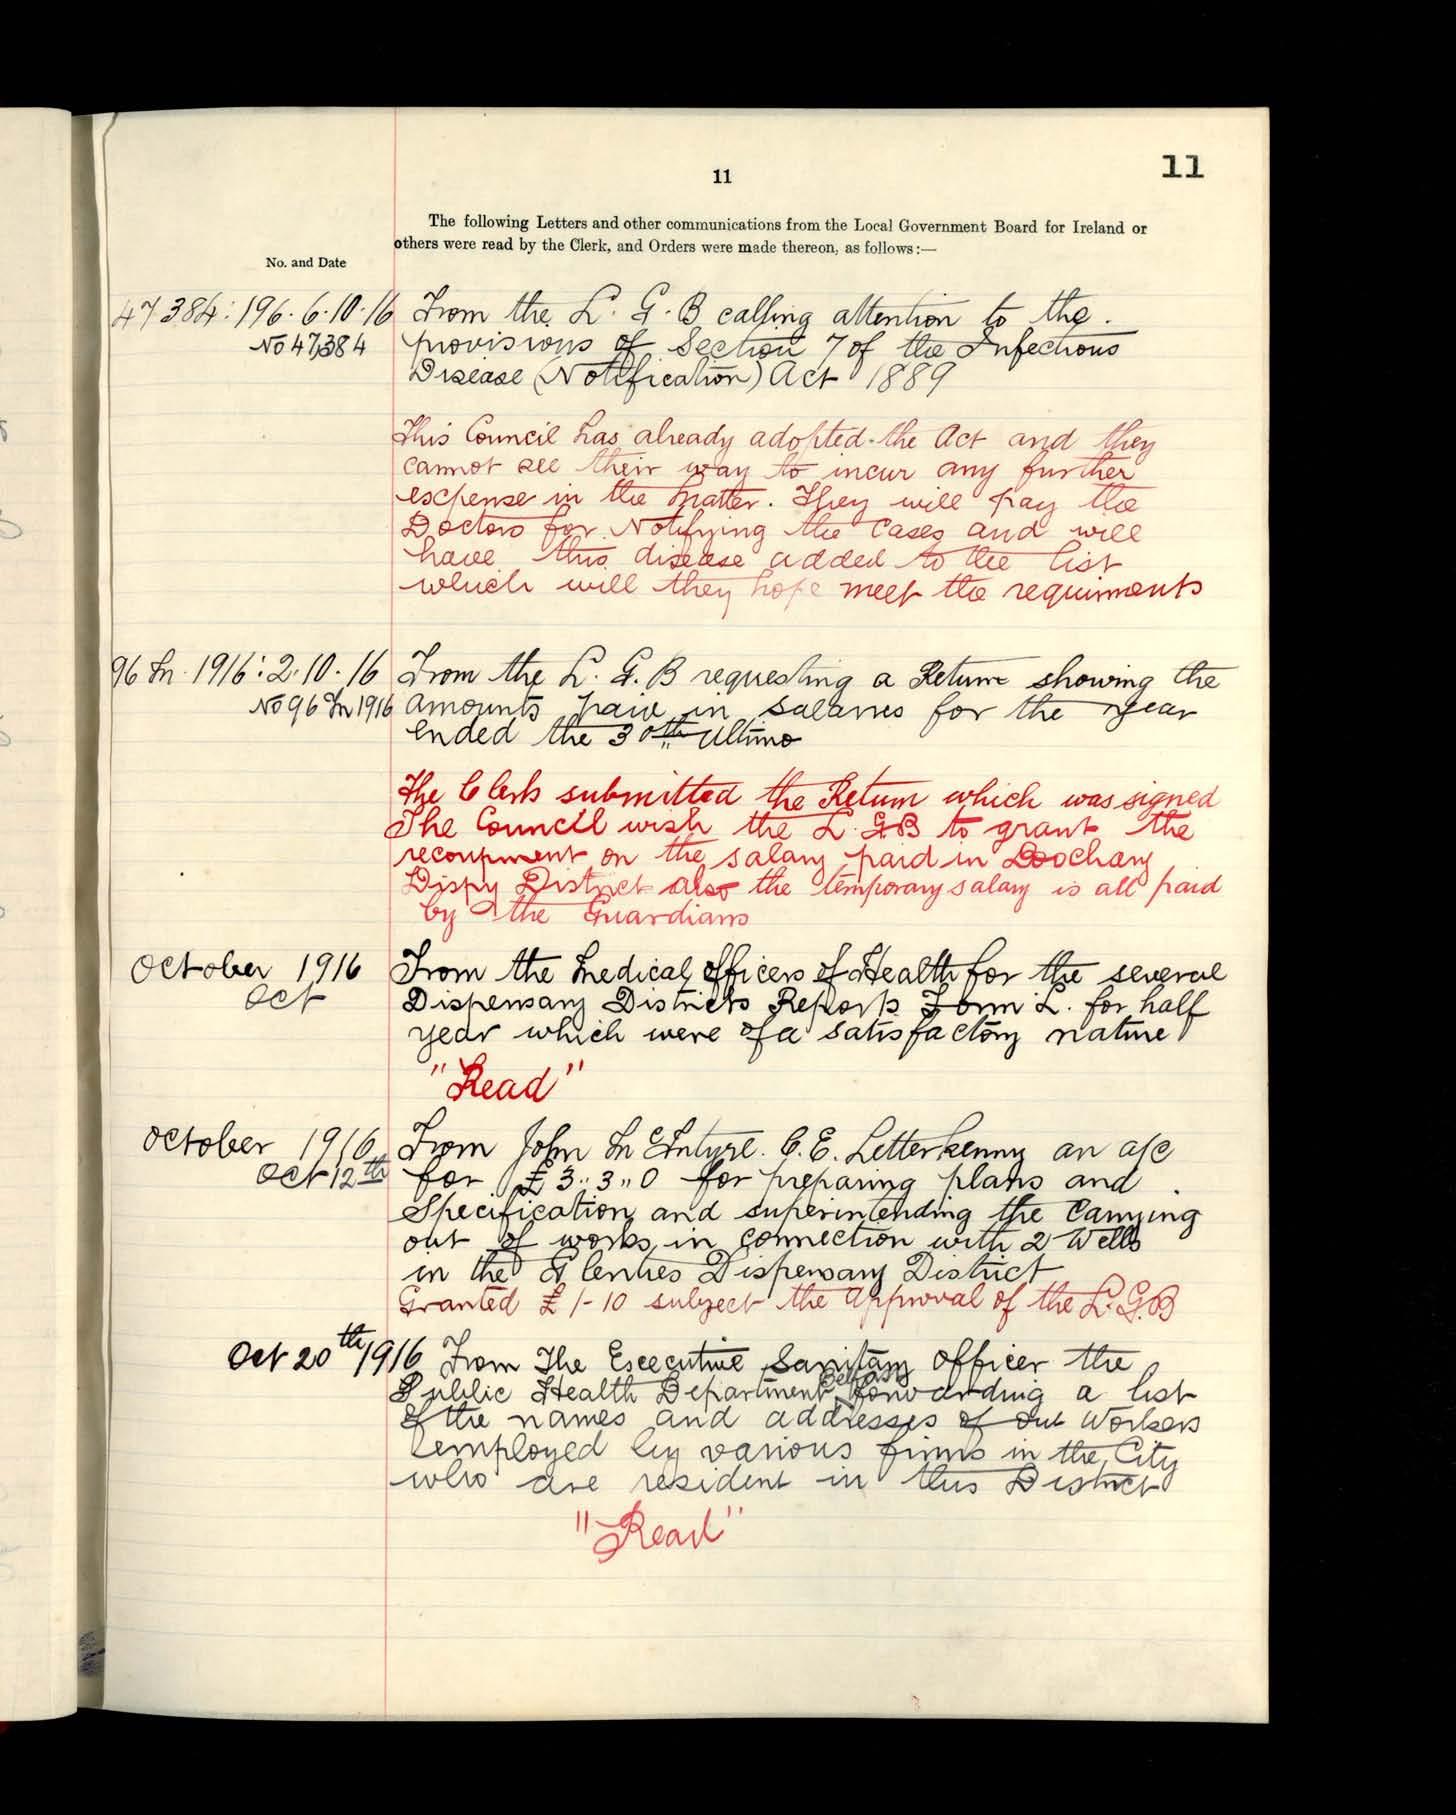 11
11
The following Letters and other communications from the Local Government Board for Ireland or
others were read by the Clerk, and Orders were made thereon, as follows:—
No. and Date
47384: 196. 6.10.16 From the L. G. B calling attention to the.
No 47,384 provisions of Section 7 of the Infectious
Disease (Notification) Act 1889
This Council has already adopted the Act and they
cannot see their way to incur any further
expense in the matter. They will pay the
Doctors for Notifying the cases and will
have this disease added to the list
which will they hope meet the requirments
96 M. 1916: 2.10.16 From the L. G. B requesting a Return showing the
No 96 M 1916 amounts paid in salaries for the year
ended the 30th Ultimo
The Clerk submitted the Return which was signed
The Council wish the L. G B to grant the
recoupment on the salary paid in Doochary
Dispy District also the temporary salary is all paid
by the Guardians
October 1916 From the Medical Officers of Health for the several
Oct Dispensary Districts Reports Form L. for half
year which were of a satisfactory nature
"Read"
October 1916 From John McIntyre. C. E. Letterkenny an a/c
Oct 12th for £3..3..0 for preparing plans and
Specification and superintending the carrying
out of works in connection with 2 Wells
in the Glenties Dispensary District
Granted £1-10 subject the approval of the L. G. B
Oct 20th 1916 From The Executive Sanitary Officer the
Public Health Department Belfast forwarding a list
of the names and addresses of out workers
employed by various firms in the City
who are resident in this District
"Read"